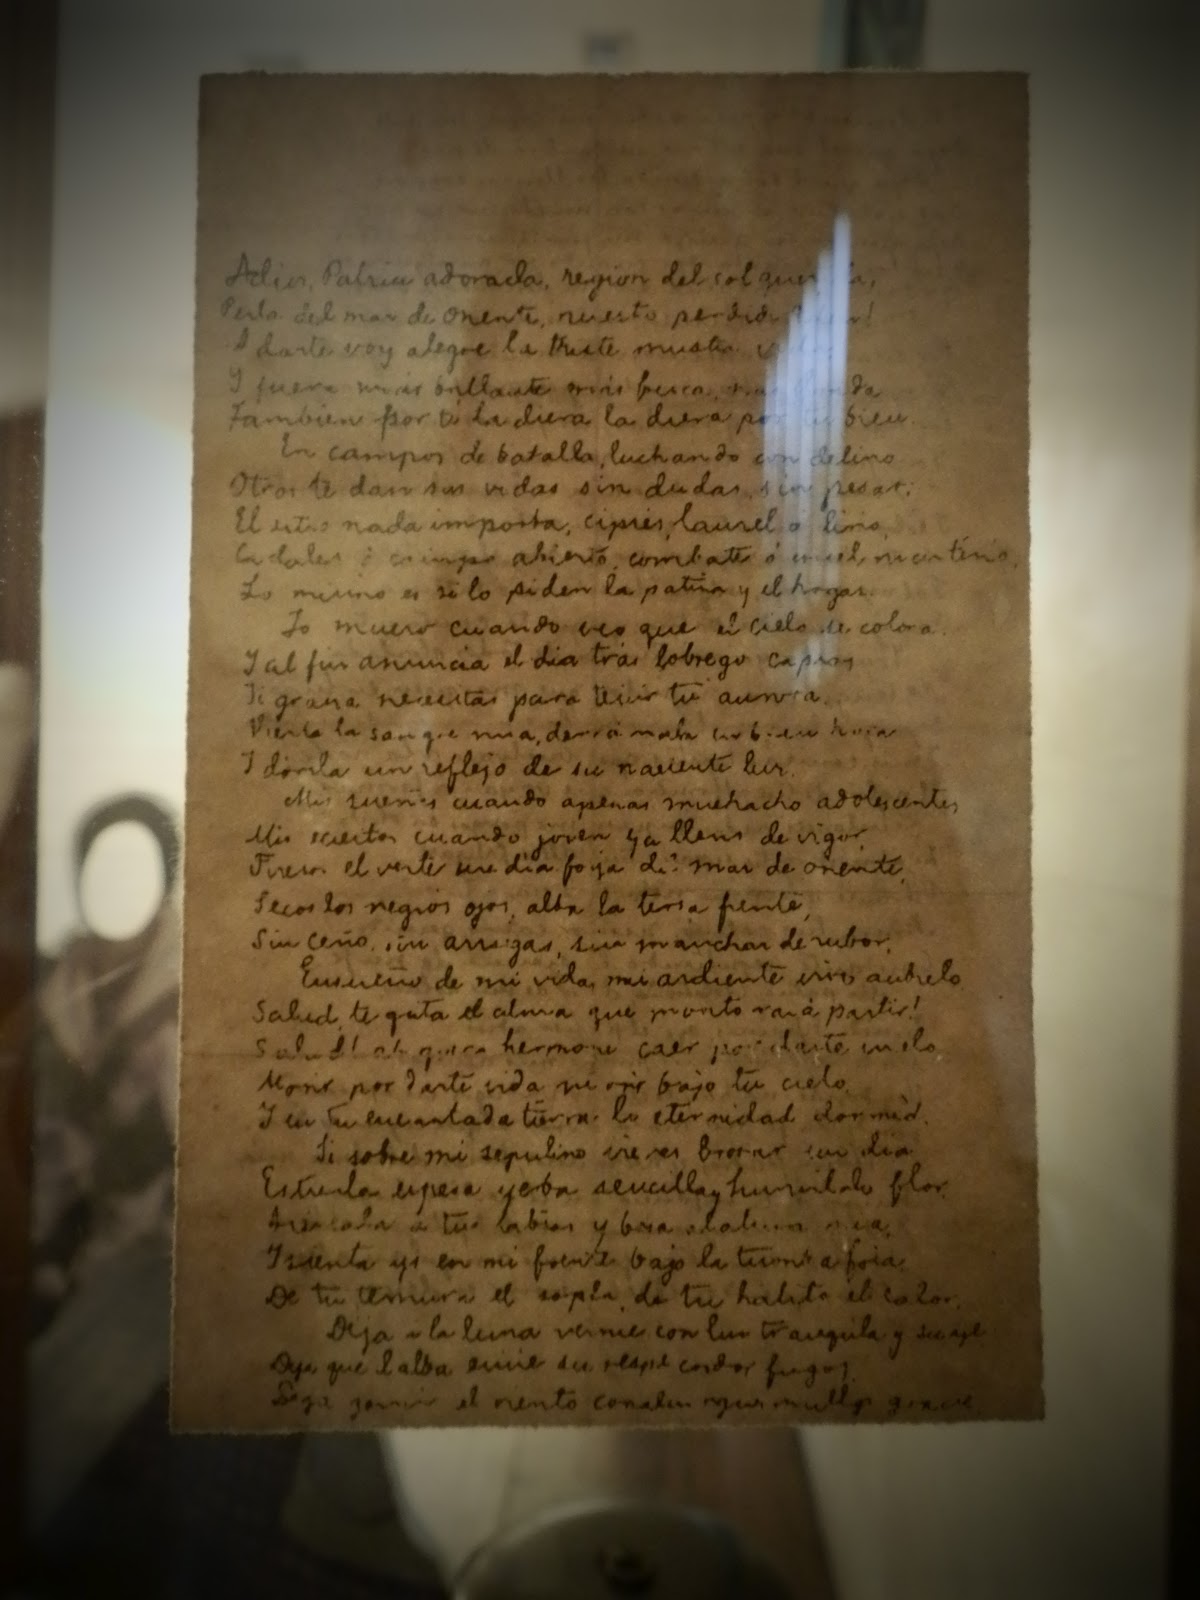 Adios, Patria adorada, region del sol querida,
Perla del mar de oriente, nuestro perdido
A darte voy alegre la triste mustia vida
Y fuera más brillante más fresca, mas florida
Tambien por tí la diera la diera por tu bien.
En campos de batalla, luchando con delirio
Otros te dan sus vidas sin dudas, sin pesar;
El sitio nada importa, ciprés, laurel ó lirio,
Cadalso ó campo abierto, combate ó cruel martirio,
Lo mismo es si lo piden la patria y el hogar.
Yo muero cuando veo que el cielo se colora
Y al fin anuncia el dia trás lóbrego capuz
Si grana necesitas para teñir tu aurora
Vierte la sangre mia, derrámala en buen hora
Y dórela un reflejo de su naciente luz.
Mis sueños cuando apenas muchacho adolescente,
Mis sueños cuando joven ya lleno de vigor,
Fueron el verte un dia joya del mar de oriente,
Secos los negros ojos, alta la tersa frente,
Sin ceño, sin arrugas, sin manchas de rubor.
Ensueño de mi vida, mi ardiente vivo anhelo
Salud, te grita el alma que pronto va á partir!
Salud! ah que es hermoso caer por darte vuelo
Morir por darte vida, morir bajo tu cielo,
Y en tu encantada tierra la eternidad dormir.
Si sobre mi sepulcro vieres brotar un dia
Entre la espesa yerba sencilla, humilde flor,
Acércala a tus labios y besa al alma mia,
Y sienta yo en mi frente bajo la tumba fria
De tu ternura el soplo, de tu hálito el calor.
Deja a la luna verme con luz tranquila y suave
Deja que el alba envie su resplandor fugaz,
Deja gemir el viento con su murmullo grave